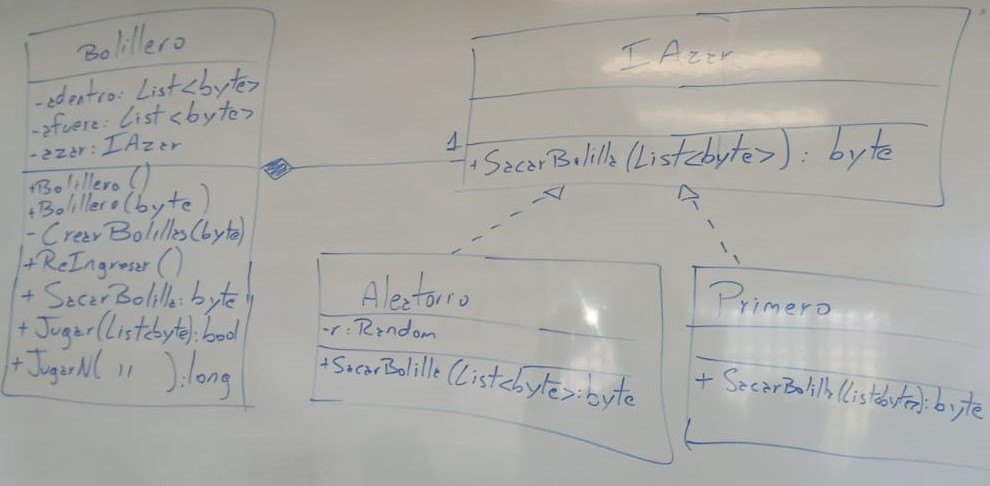 Bolillero
-adentro: List<byte>
-afuera: List<byte>
-azar: IAzar
+Bolillero()
+Bolillero(byte)
-CrearBolillas(byte)
+ReIngresar()
+ SacarBolilla: byte
+ Jugar(List<byte): bool
+ JugarN( " ): long
1
IAzar
+SacarBolilla(List<byte>): byte
Aleatorio
-r: Random
+SacarBolilla(List<byte>: byte
Primero
+ SacarBolilla(List<byte>): byte